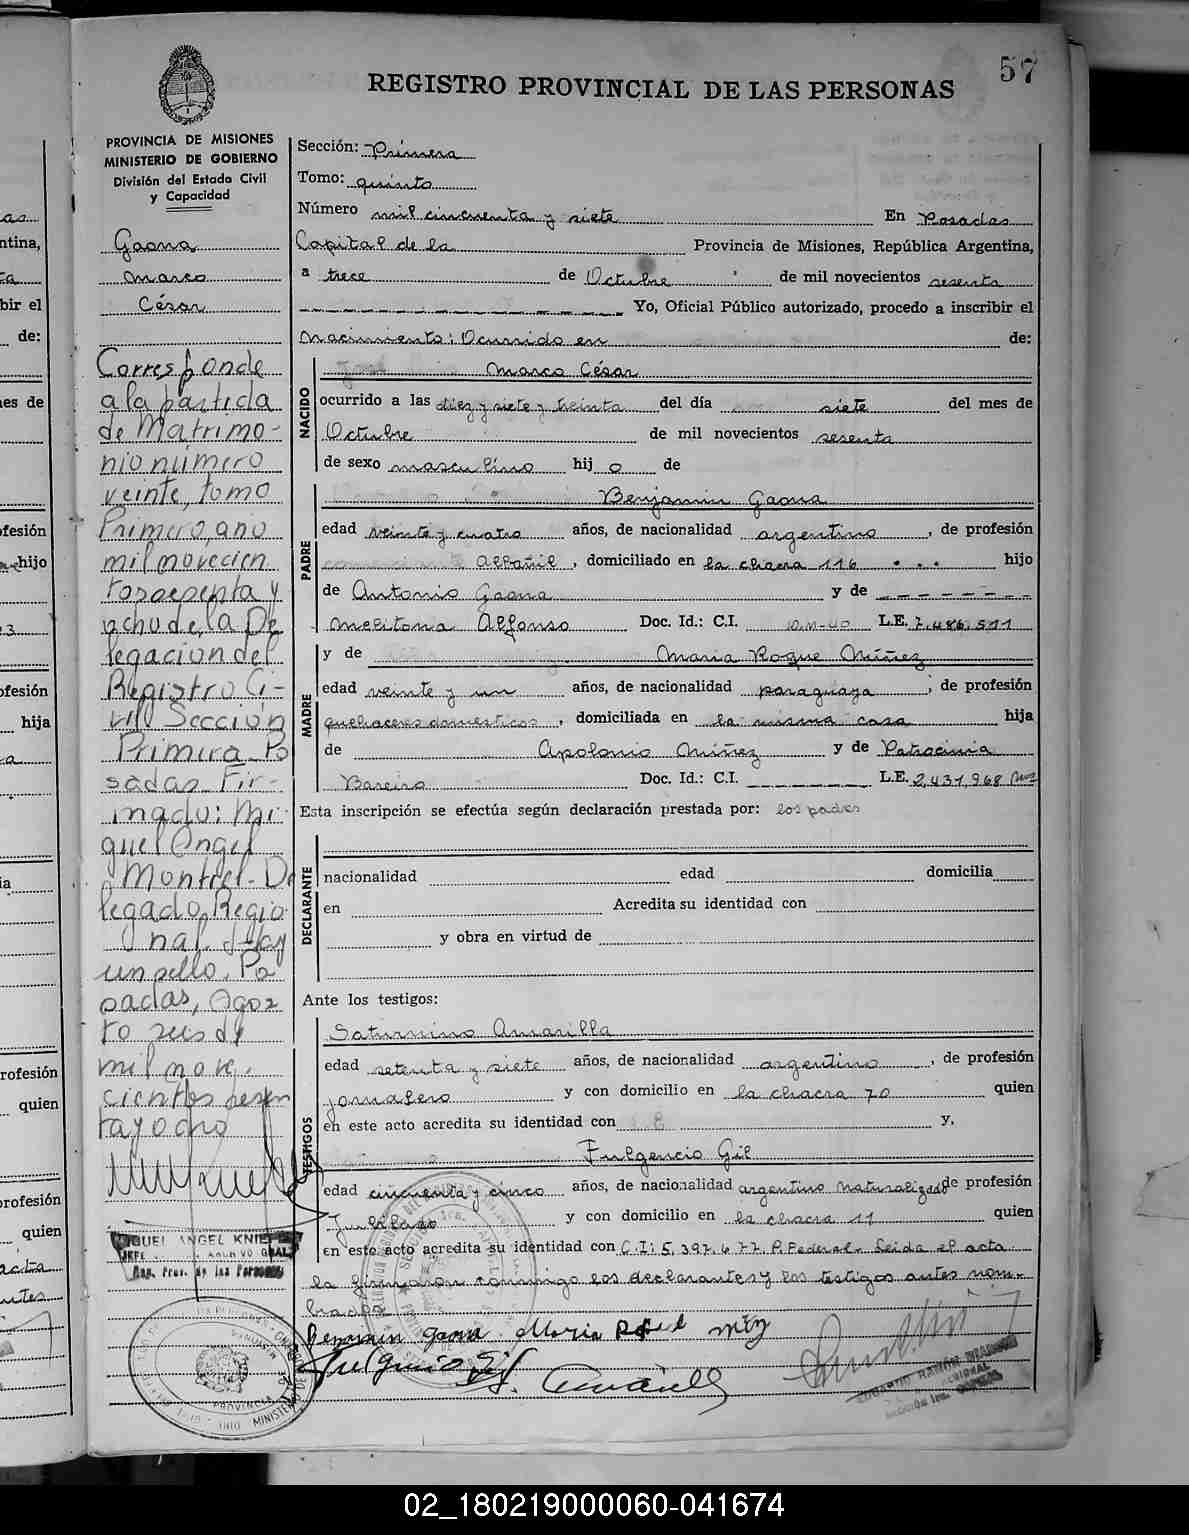 57
REGISTRO PROVINCIAL DE LAS PERSONAS
PROVINCIA DE MISIONES
MINISTERIO DE GOBIERNO
División del Estado Civil
y Capacidad
Gaona
Marco
César
Corresponde
a la partida
de Matrimo-
nio número
veinte, tomo
Primero, año
mil novecien
tos sesenta y
ocho de la De
legación del
Registro Ci-
vil Sección
Primera Po
sadas. Fir-
mado: Mi
guel Angel
Montiel - De
legado Regio
nal. Hay
un sello. Po
sadas, Agos
to seis de
mil nove.
cientos sesen
ta y ocho
MIGUEL ANGEL
JEFE
Reg. Prov. de las Personas
Sección: Primera
Tomo: quinto
Número mil cincuenta y siete En Posadas
Capital de la Provincia de Misiones, República Argentina,
a trece de Octubre de mil novecientos sesenta
Yo, Oficial Público autorizado, procedo a inscribir el
Nacimiento: Ocurrido en de:
NACIDO
Marco César
ocurrido a las diez y siete y treinta del día siete del mes de
Octubre de mil novecientos sesenta
de sexo masculino hij o de
PADRE
Benjamin Gaona
edad veinte y cuatro años, de nacionalidad argentino, de profesión
Albañil, domiciliado en la chacra 116 hijo
de Antonio Gaona y de
Melitona Alfonso Doc. Id.: C.I. D.M-40 L.E. 7.486.511
MADRE
y de Maria Roque Núñez
edad veinte y un años, de nacionalidad paraguaya, de profesión
quehaceres domesticos, domiciliada en la misma casa hija
de Apolonio Núñez y de Patrocinia
Bareiro Doc. Id.: C.I. L.E. 2,431,968
Esta inscripción se efectúa según declaración prestada por: los padres
DECLARANTE
nacionalidad edad domicilia
en Acredita su identidad con
y obra en virtud de
Ante los testigos:
TESTIGOS
Saturnino Amarilla
edad setenta y siete años, de nacionalidad argentino, de profesión
jornalero y con domicilio en la chacra 70 quien
en este acto acredita su identidad con y,
Fulgencio Gil
edad cincuenta y cinco años, de nacionalidad argentino naturalizado de profesión
Jubilado y con domicilio en la chacra 11 quien
en este acto acredita su identidad con C.I: 5.397.677. P. Federal. Leida el acta
la firmaron conmigo los declarantes y los testigos antes nom-
brados
Benjamin Gaona Maria
Fulgencio Gil
02_180219000060-041674